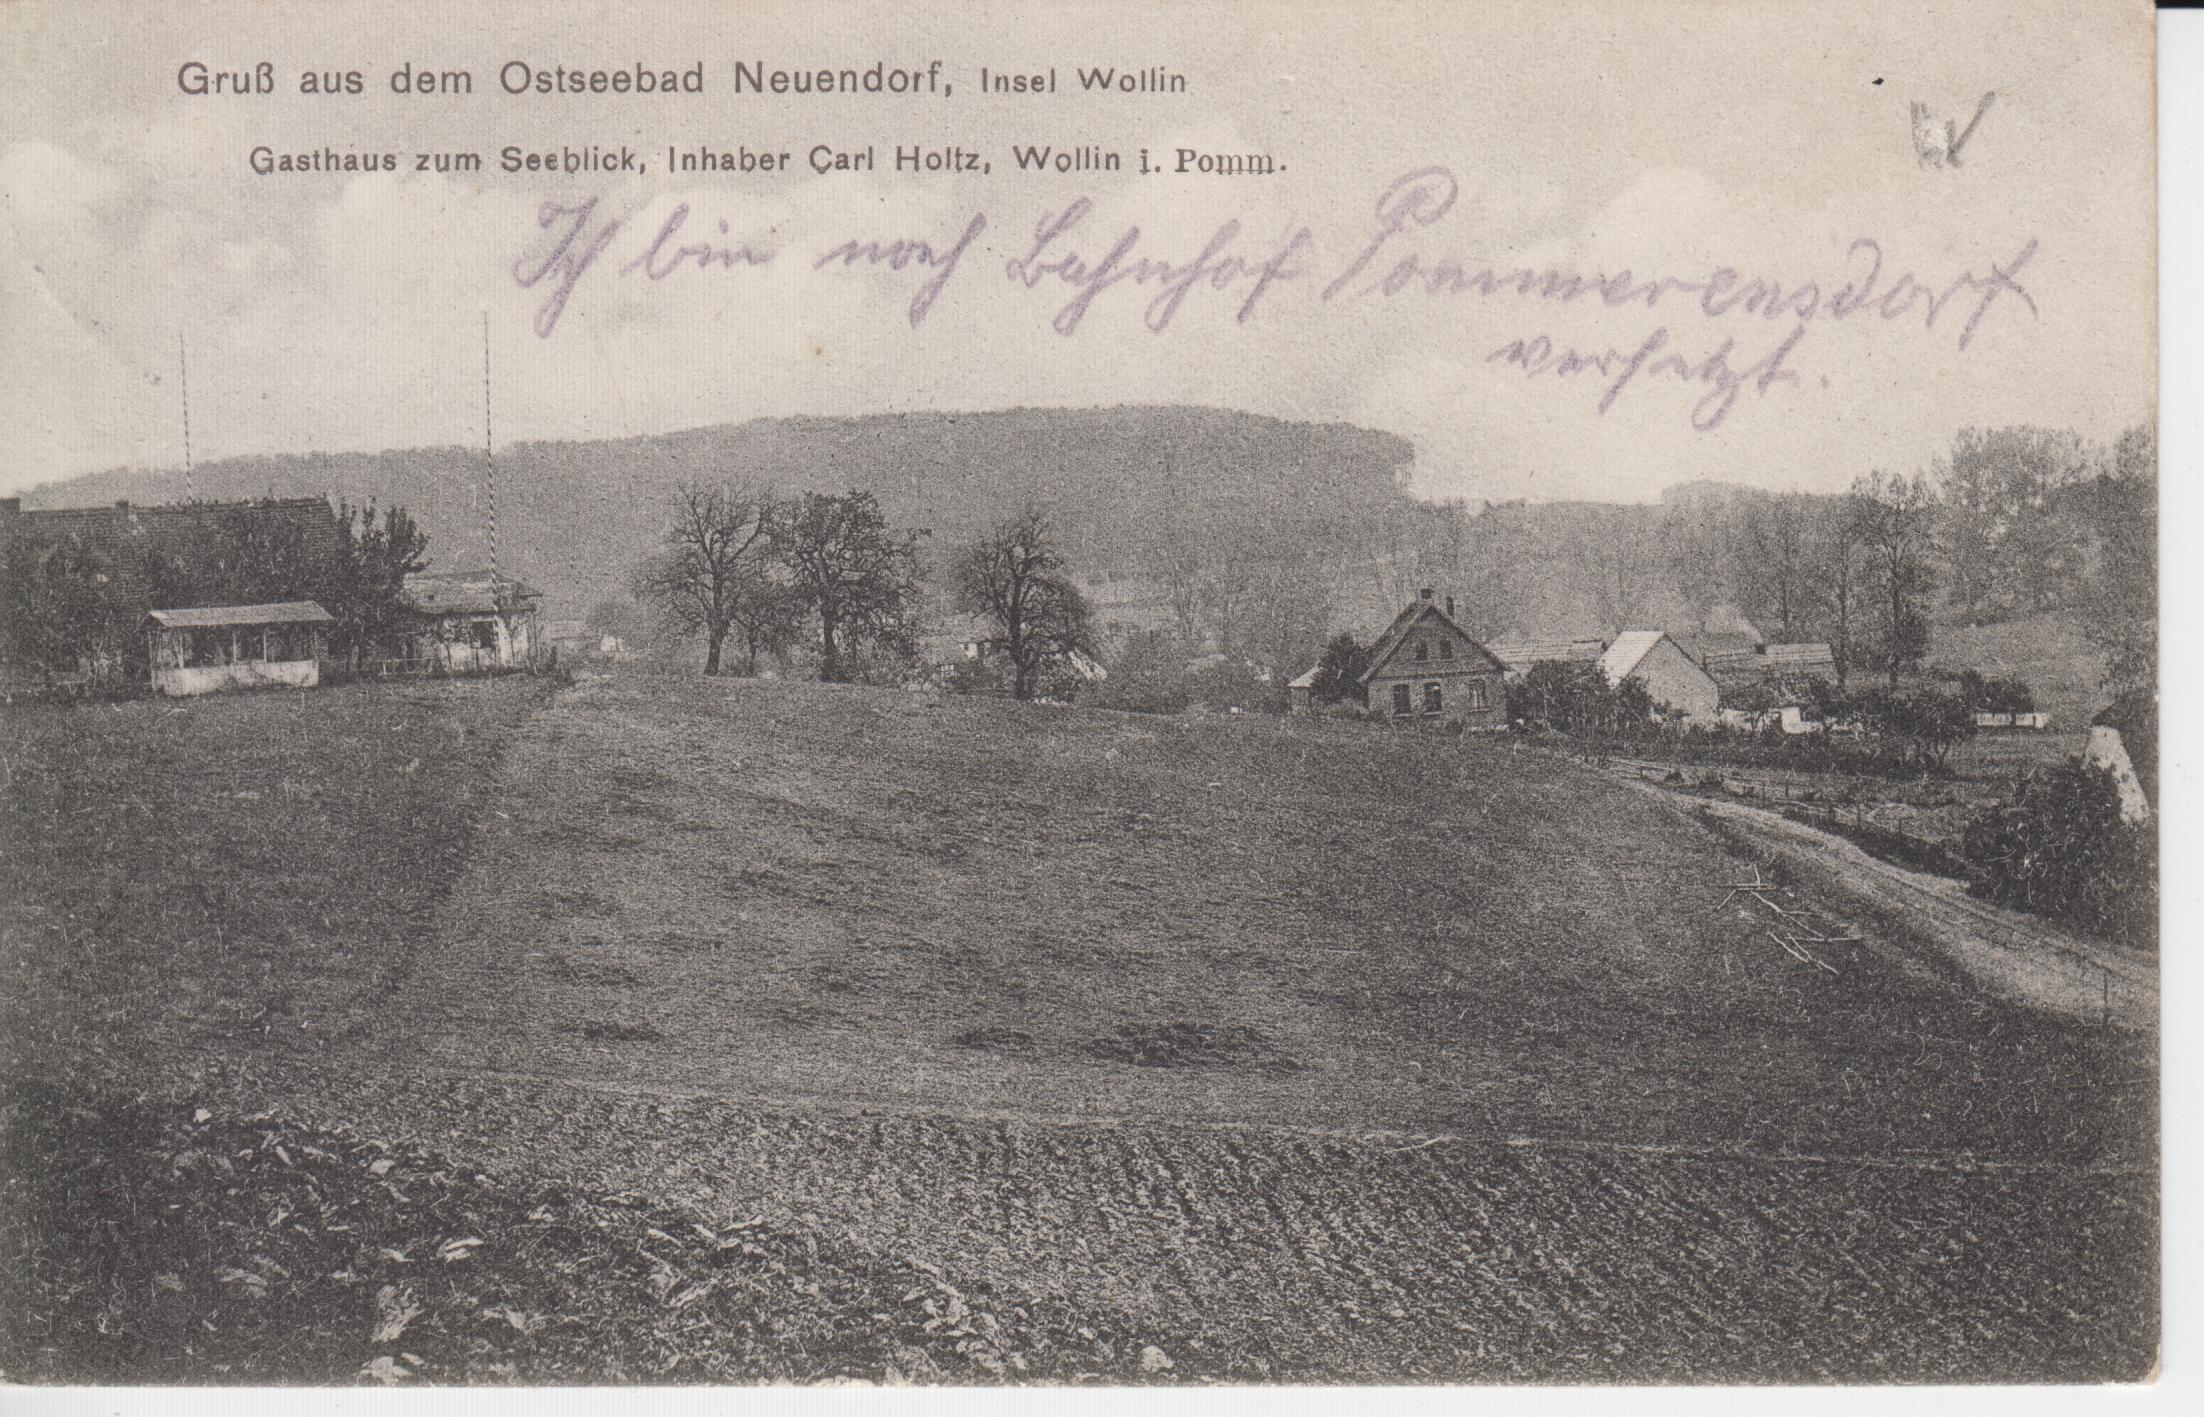 Gruß aus dem Ostseebad Neuendorf, Insel Wollin
Gasthaus zum Seeblick, Inhaber Carl Holtz, Wollin i. Pomm.
Ich bin nach Bahnhof Pommerensdorf
versetzt.